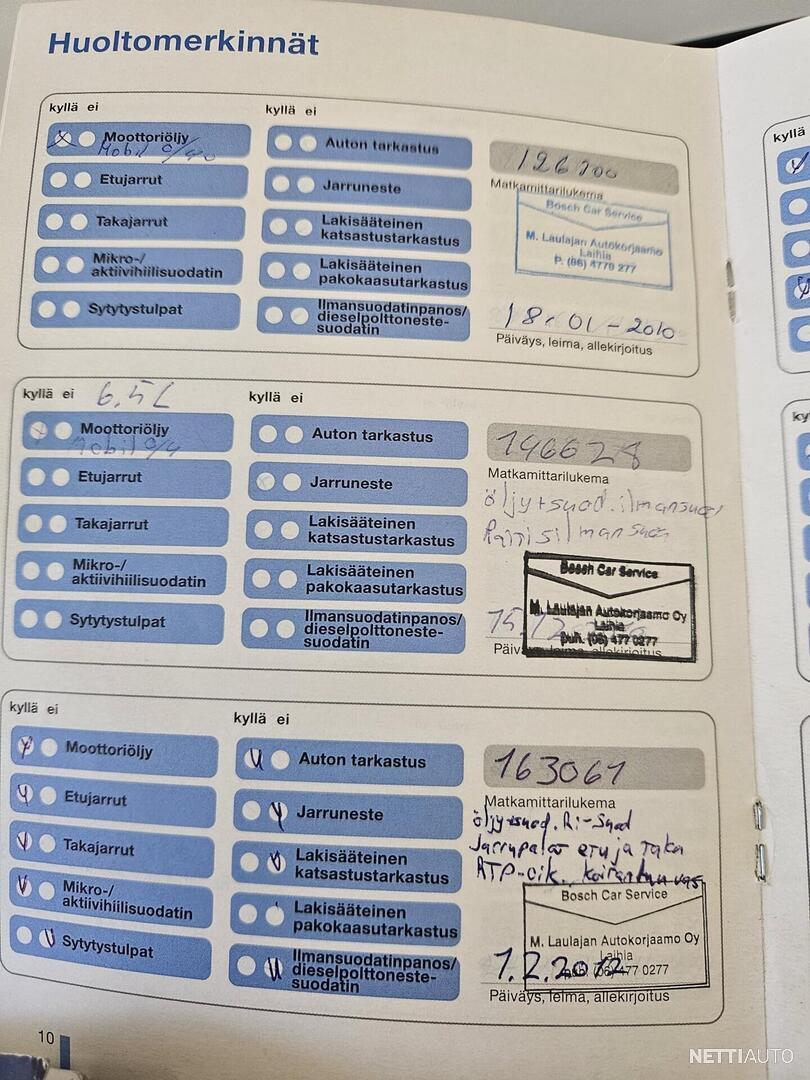 Huoltomerkinnät
kyllä ei
kyllä ei
Moottoriöljy
Mobil 0/40
Etujarrut
Takajarrut
Mikro-/
aktiivihiilisuodatin
Sytytystulpat
Auton tarkastus
Jarruneste
Lakisääteinen
katsastustarkastus
Lakisääteinen
pakokaasutarkastus
Ilmansuodatinpanos/
dieselpolttoneste-
suodatin
126200
Matkamittarilukema
Bosch Car Service
M. Laulajan Autokorjaamo
Laihia
P. (06) 4770 277
18.01-2010
Päiväys, leima, allekirjoitus
kyllä ei 6,5L
kyllä ei
Moottoriöljy
Mobil 0/4
Etujarrut
Takajarrut
Mikro-/
aktiivihiilisuodatin
Sytytystulpat
Auton tarkastus
Jarruneste
Lakisääteinen
katsastustarkastus
Lakisääteinen
pakokaasutarkastus
Ilmansuodatinpanos/
dieselpolttoneste-
suodatin
146628
Matkamittarilukema
öljy+suod. ilmansuod
Raitisilmansuod
Bosch Car Service
M. Laulajan Autokorjaamo Oy
Laihia
puh. (06) 477 0277
15.12
Päiväys, leima, allekirjoitus
kyllä ei
kyllä ei
Moottoriöljy
Etujarrut
Takajarrut
Mikro-/
aktiivihiilisuodatin
Sytytystulpat
Auton tarkastus
Jarruneste
Lakisääteinen
katsastustarkastus
Lakisääteinen
pakokaasutarkastus
Ilmansuodatinpanos/
dieselpolttoneste-
suodatin
163061
Matkamittarilukema
öljy+suod. Ri-Suod
Jarrupalat etu ja Taka
RTP-oik.
Bosch Car Service
M. Laulajan Autokorjaamo Oy
Laihia
puh. (06) 477 0277
1.2.2012
Päiväys, leima, allekirjoitus
10
kyllä
ky
NETTIAUTO